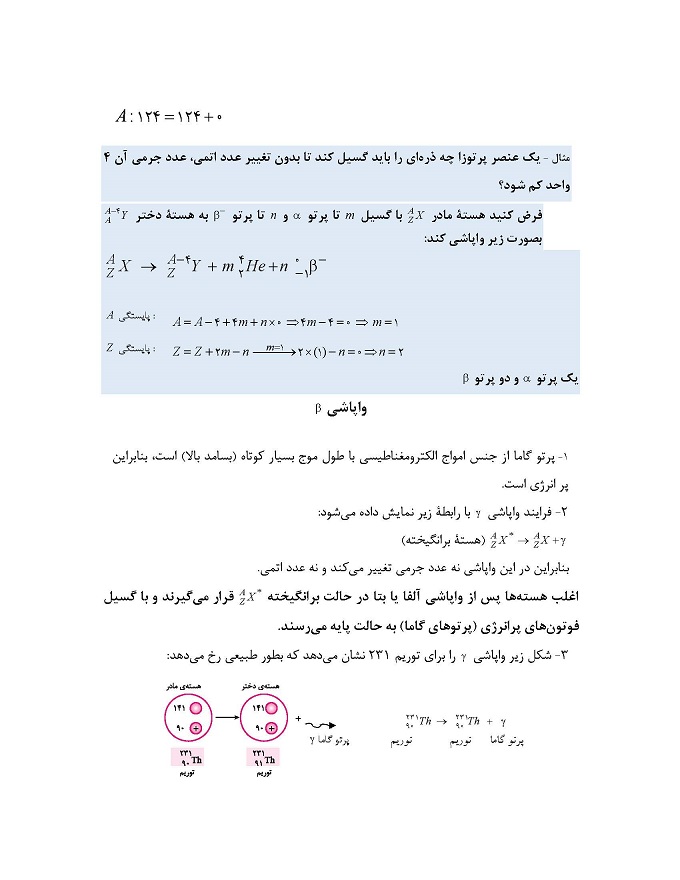 A : ۱۲۴ = ۱۲۴ + ۰
مثال - یک عنصر پرتوزا چه ذره‌ای را باید گسیل کند تا بدون تغییر عدد اتمی، عدد جرمی آن ۴
واحد کم شود؟
فرض کنید هستهٔ مادر ^A_Z X با گسیل m تا پرتو α و n تا پرتو β⁻ به هستهٔ دختر ^{A−۴}_A Y
بصورت زیر واپاشی کند:
^A_Z X → ^{A−۴}_Z Y + m ^۴_۲ He + n ^۰_{−۱} β⁻
پایستگی A : A = A − ۴ + ۴m + n × ۰ ⇒ ۴m − ۴ = ۰ ⇒ m = ۱
پایستگی Z : Z = Z + ۲m − n —m=۱→ ۲ × (۱) − n = ۰ ⇒ n = ۲
یک پرتو α و دو پرتو β
واپاشی β
۱- پرتو گاما از جنس امواج الکترومغناطیسی با طول موج بسیار کوتاه (بسامد بالا) است، بنابراین
پر انرژی است.
۲- فرایند واپاشی γ با رابطهٔ زیر نمایش داده می‌شود:
(هستهٔ برانگیخته) ^A_Z X* → ^A_Z X + γ
بنابراین در این واپاشی نه عدد جرمی تغییر می‌کند و نه عدد اتمی.
اغلب هسته‌ها پس از واپاشی آلفا یا بتا در حالت برانگیخته ^A_Z X* قرار می‌گیرند و با گسیل
فوتون‌های پرانرژی (پرتوهای گاما) به حالت پایه می‌رسند.
۳- شکل زیر واپاشی γ را برای توریم ۲۳۱ نشان می‌دهد که بطور طبیعی رخ می‌دهد:
هسته‌ی مادر هسته‌ی دختر
۱۴۱ ۱۴۱
۹۰ + → ۹۰ + +
پرتو گاما γ
^{۲۳۱}_{۹۰} Th ^{۲۳۱}_{۹۱} Th
توریم توریم
^{۲۳۱}_{۹۰} Th → ^{۲۳۱}_{۹۰} Th + γ
توریم توریم پرتو گاما